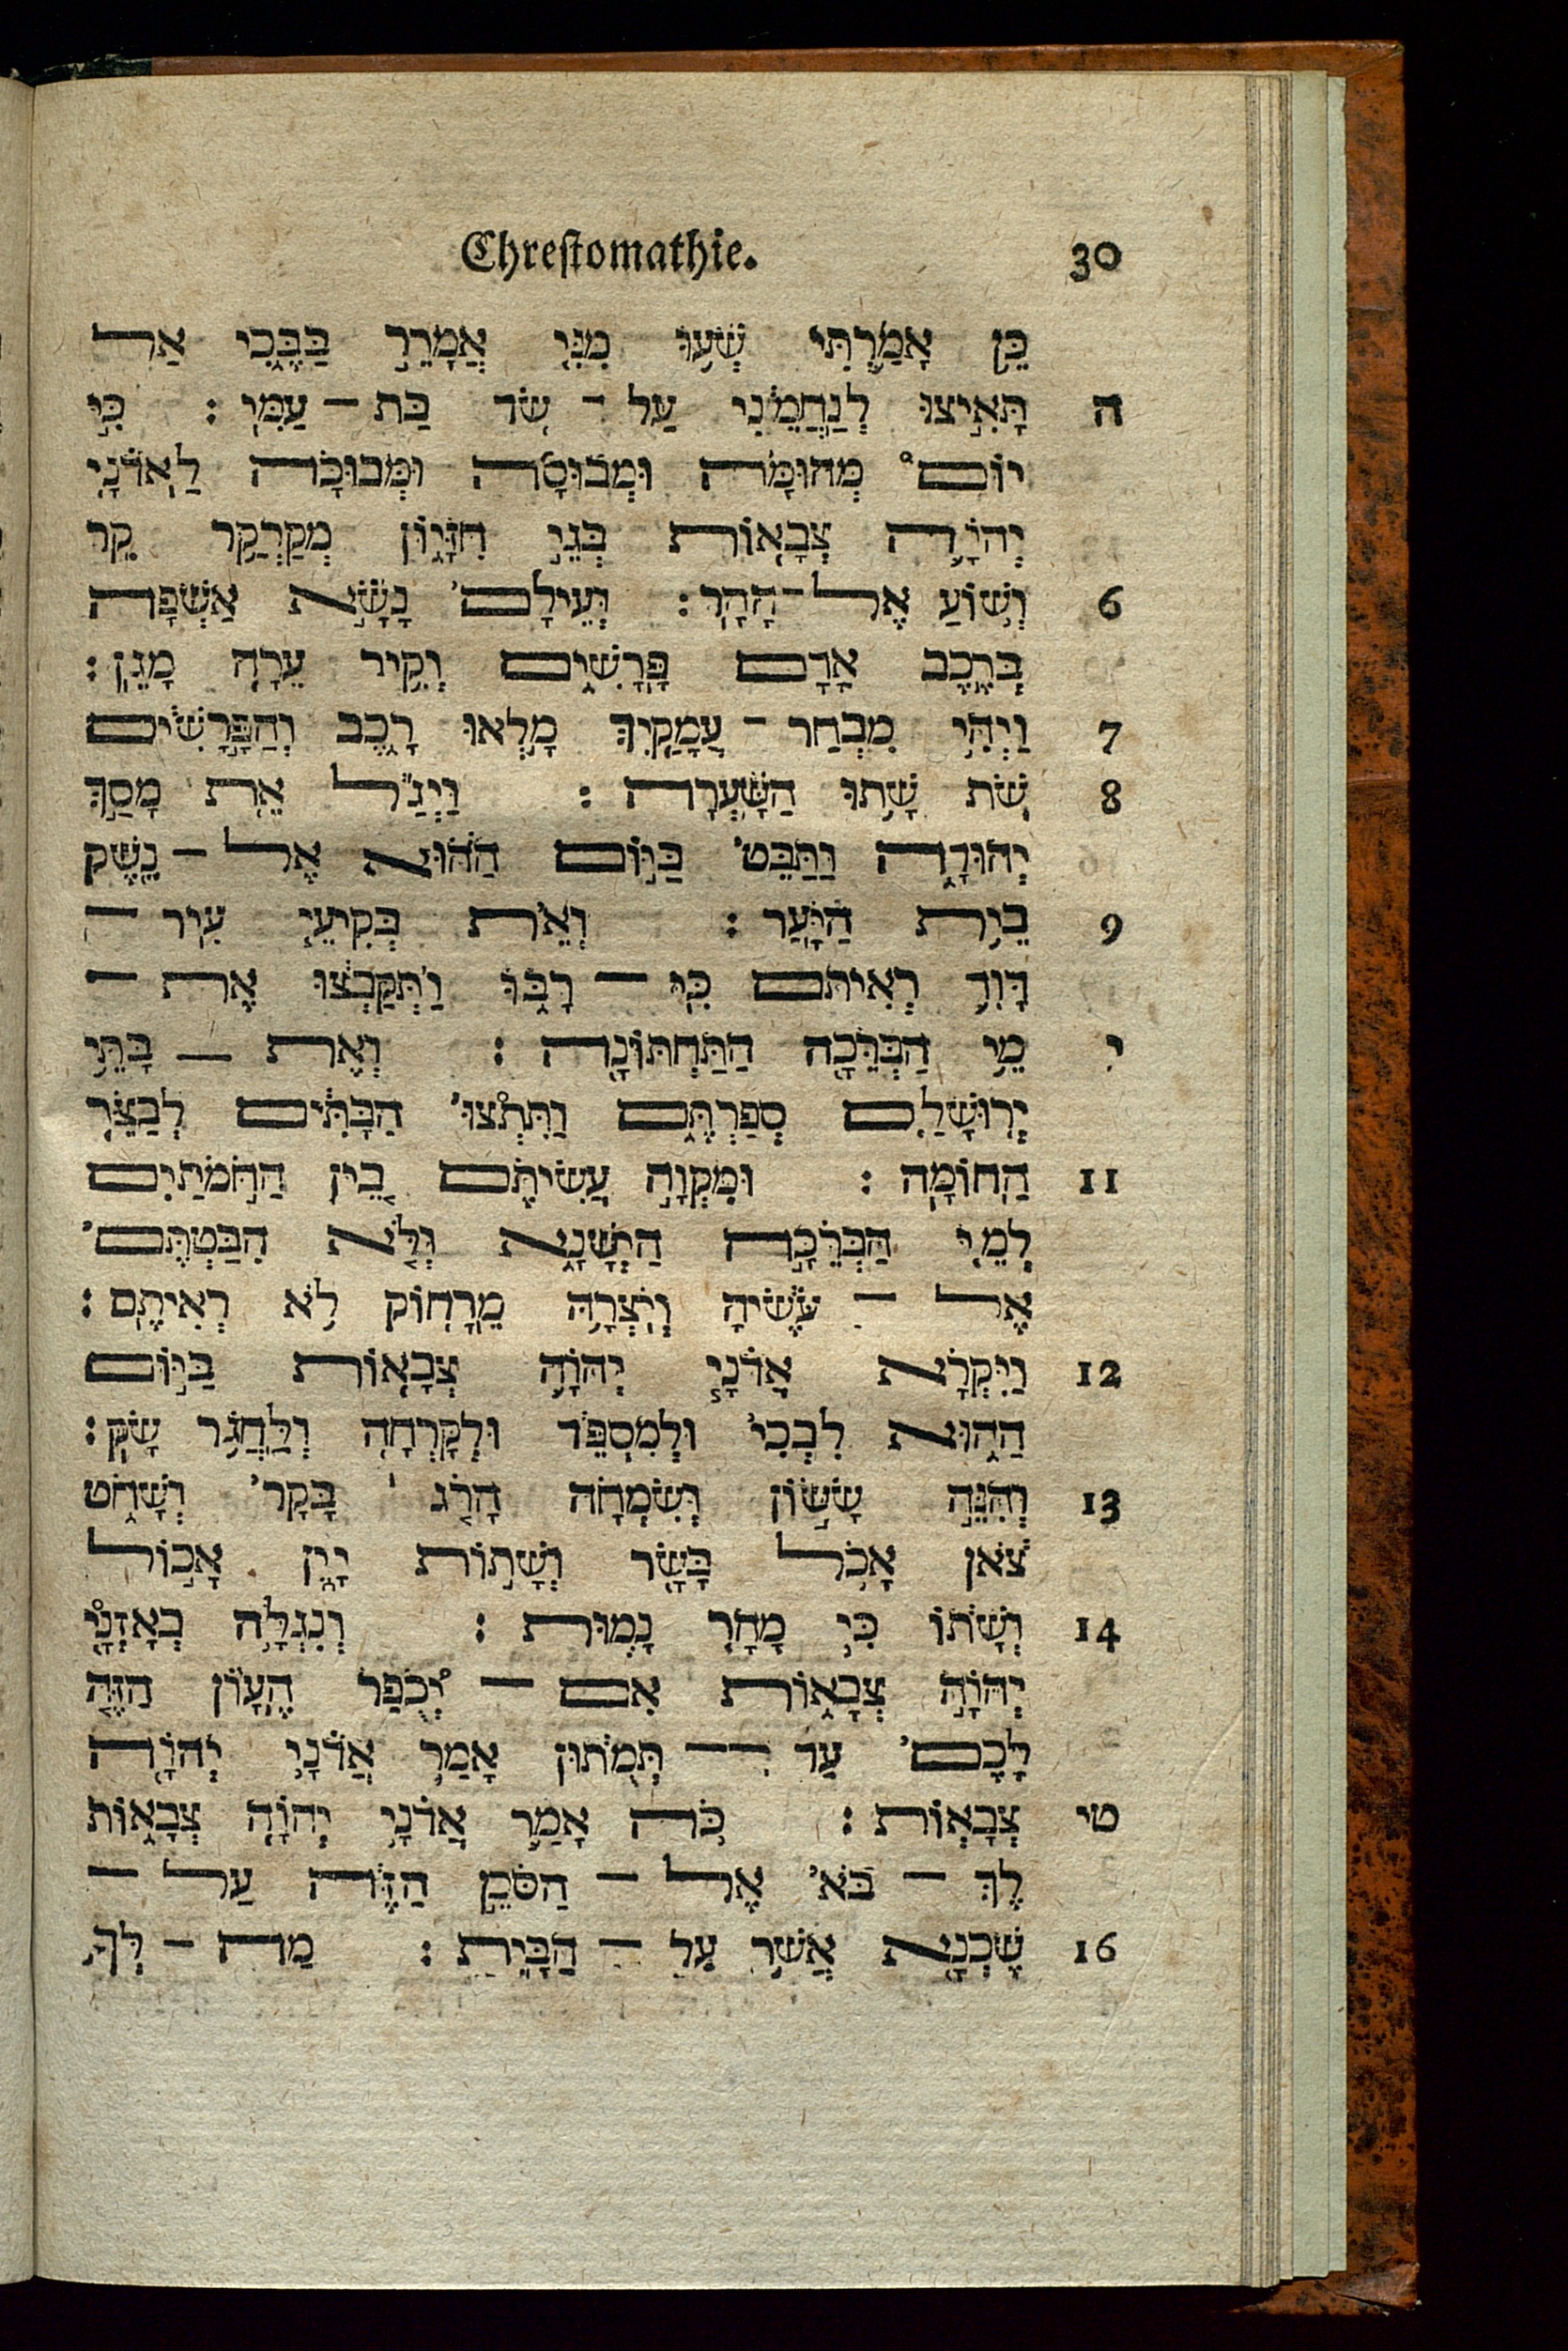 Chrestomathie. 30
כֵּ֥ן אָמַ֛רְתִּי שְׁע֥וּ מִנִּ֖י אֲמָרֵ֣ר בַּבֶּ֑כִי אַל
ה תָּאִ֣יצוּ לְנַחֲמֵ֔נִי עַל־שֹׁ֖ד בַּת־עַמִּֽי׃ כִּ֣י
יוֹם֩ מְהוּמָ֨ה וּמְבוּסָ֜ה וּמְבוּכָ֗ה לַֽאדֹנָ֧י
יְהוִֹ֛ה צְבָא֖וֹת בְּגֵ֣י חִזָּי֑וֹן מְקַרְקַ֥ר קִ֖ר
6 וְשׁ֥וֹעַ אֶל־הָהָֽר׃ וְעֵילָם֙ נָשָׂ֣א אַשְׁפָּ֔ה
בְּרֶ֥כֶב אָדָ֖ם פָּֽרָשִׁ֑ים וְקִ֥יר עֵרָ֖ה מָגֵֽן׃
7 וַיְהִ֥י מִבְחַר־עֲמָקַ֖יִךְ מָ֣לְאוּ רָ֑כֶב וְהַפָּ֣רָשִׁ֔ים
8 שֹׁ֖ת שָׁ֥תוּ הַשָּֽׁעְרָה׃ וַיְגַ֕ל אֵ֖ת מָסַ֣ךְ
יְהוּדָ֑ה וַתַּבֵּט֙ בַּיּ֣וֹם הַה֔וּא אֶל־נֶ֖שֶׁק
9 בֵּ֥ית הַיָּֽעַר׃ וְאֵ֨ת בְּקִיעֵ֧י עִיר־
דָּוִ֛ד רְאִיתֶ֖ם כִּי־רָ֑בּוּ וַֽתְּקַבְּצ֔וּ אֶת־
י מֵ֥י הַבְּרֵכָ֖ה הַתַּחְתּוֹנָֽה׃ וְאֶת־בָּתֵּ֥י
יְרֽוּשָׁלִַ֖ם סְפַרְתֶּ֑ם וַתִּתְצוּ֙ הַבָּ֣תִּ֔ים לְבַצֵּ֖ר
11 הַחוֹמָֽה׃ וּמִקְוָ֣ה עֲשִׂיתֶ֗ם בֵּ֚ין הַחֹ֣מֹתַ֔יִם
לְמֵ֖י הַבְּרֵכָ֣ה הַיְשָׁנָ֑ה וְלֹ֤א הִבַּטְתֶּם֙
אֶל־עֹשֶׂ֔יהָ וְיֹצְרָ֥הּ מֵֽרָח֖וֹק לֹ֥א רְאִיתֶֽם׃
12 וַיִּקְרָ֗א אֲדֹנָ֧י יְהוִֹ֛ה צְבָא֖וֹת בַּיּ֣וֹם
הַה֑וּא לִבְכִי֙ וּלְמִסְפֵּ֔ד וּלְקָרְחָ֖ה וְלַחֲגֹ֥ר שָֽׂק׃
13 וְהִנֵּ֣ה שָׂשׂ֣וֹן וְשִׂמְחָ֗ה הָרֹ֤ג׀ בָּקָר֙ וְשָׁחֹ֣ט
צֹ֔אן אָכֹ֥ל בָּשָׂ֖ר וְשָׁת֣וֹת יָ֑יִן אָכ֣וֹל
14 וְשָׁת֔וֹ כִּ֥י מָחָ֖ר נָמֽוּת׃ וְנִגְלָ֥ה בְאָזְנָ֖י
יְהוָֹ֣ה צְבָא֑וֹת אִם־יְ֠כֻפַּר הֶעָוֹ֨ן הַזֶּ֤ה
לָכֶם֙ עַד־תְּמֻת֔וּן אָמַ֛ר אֲדֹנָ֥י יְהוִֹ֖ה
טי צְבָאֽוֹת׃ כֹּ֥ה אָמַ֛ר אֲדֹנָ֥י יְהוִֹ֖ה צְבָא֑וֹת
לֶךְ־בֹּא֙ אֶל־הַסֹּכֵ֣ן הַזֶּ֔ה עַל־
16 שֶׁבְנָ֖א אֲשֶׁ֥ר עַל־הַבָּֽיִת׃ מַה־לְּךָ֥